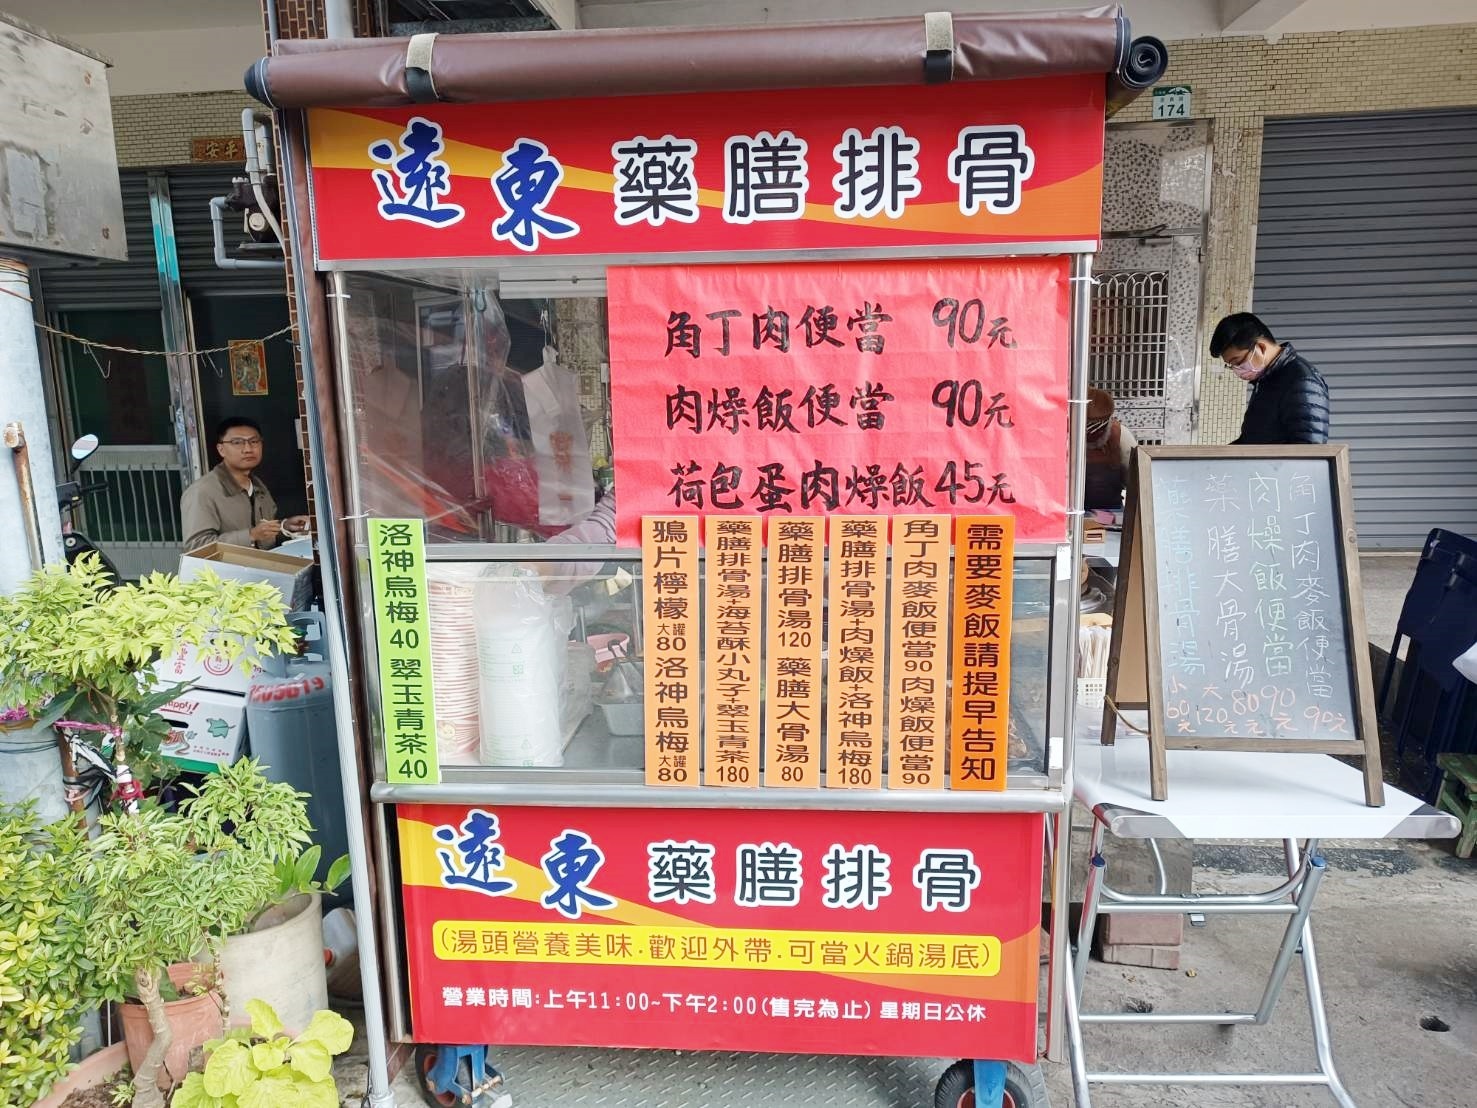 遠東 藥膳排骨
174
平安
角丁肉便當 90元
肉燥飯便當 90元
荷包蛋肉燥飯45元
洛神烏梅40 翠玉青茶40
鴉片檸檬大罐80 洛神烏梅大罐80
藥膳排骨湯+海苔酥小丸子+翠玉青茶180
藥膳排骨湯120 藥膳大骨湯80
藥膳排骨湯+肉燥飯+洛神烏梅180
角丁肉麥飯便當90 肉燥飯便當90
需要麥飯請提早告知
角丁肉麥飯便當 90元
肉燥飯便當 90元
藥膳大骨湯 80元
藥膳排骨湯 小60元 大120元
遠東 藥膳排骨
(湯頭營養美味.歡迎外帶.可當火鍋湯底)
營業時間:上午11:00~下午2:00(售完為止) 星期日公休